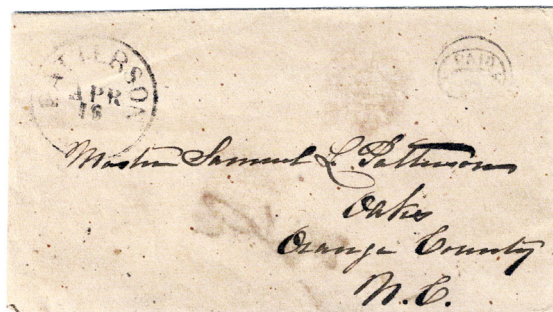 PATTERSON
APR
16
PAID
Master Samuel L. Patterson
Oaks
Orange County
N.C.